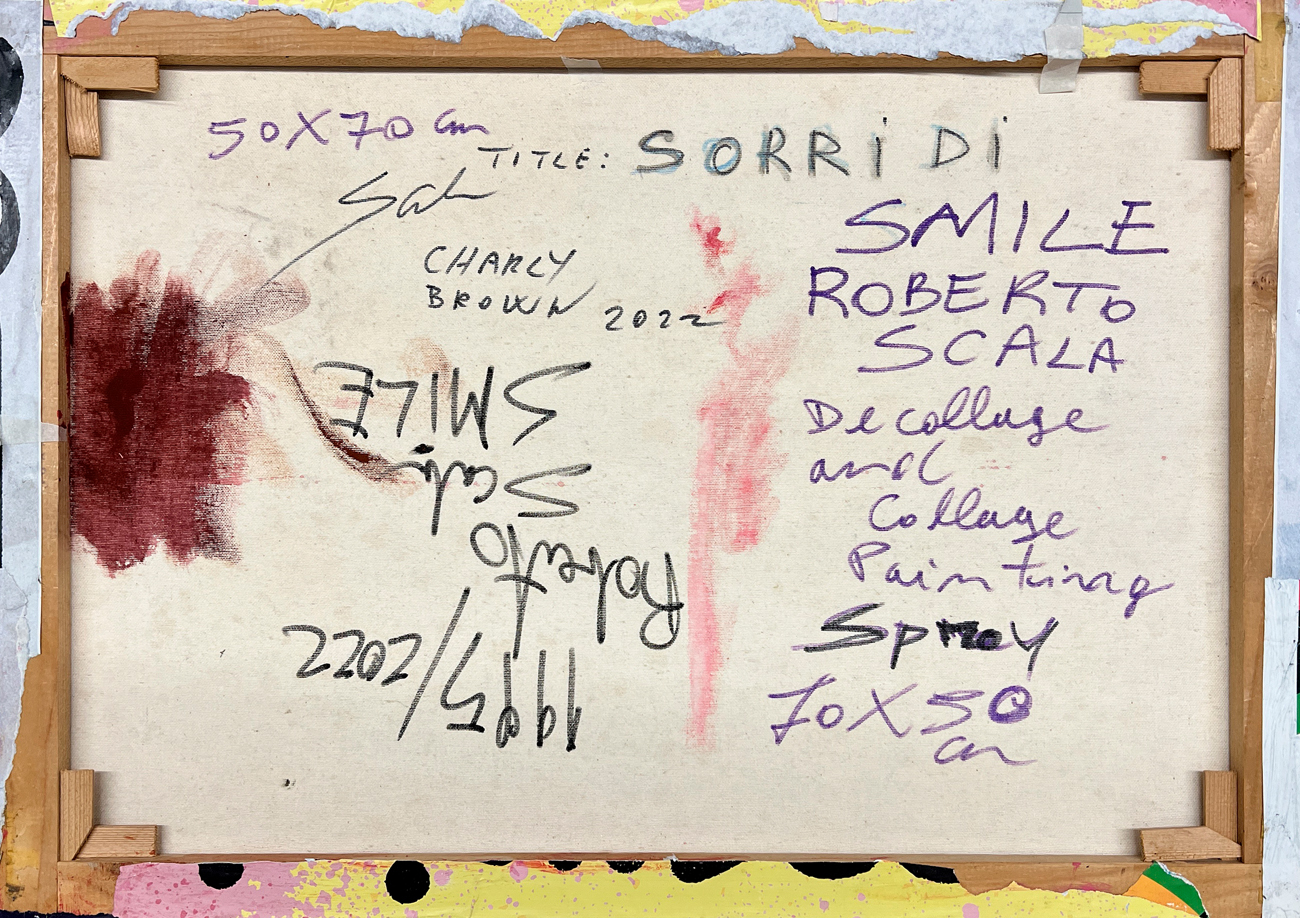 50X70 cm
TITLE: SORRiDi
Scala
CHARLY
BROWN 2022
SMILE
ROBERTO
SCALA
Decollage
and
Collage
Painting
Spray
70X50
cm
SMILE
Scala
Roberto
1995/2022